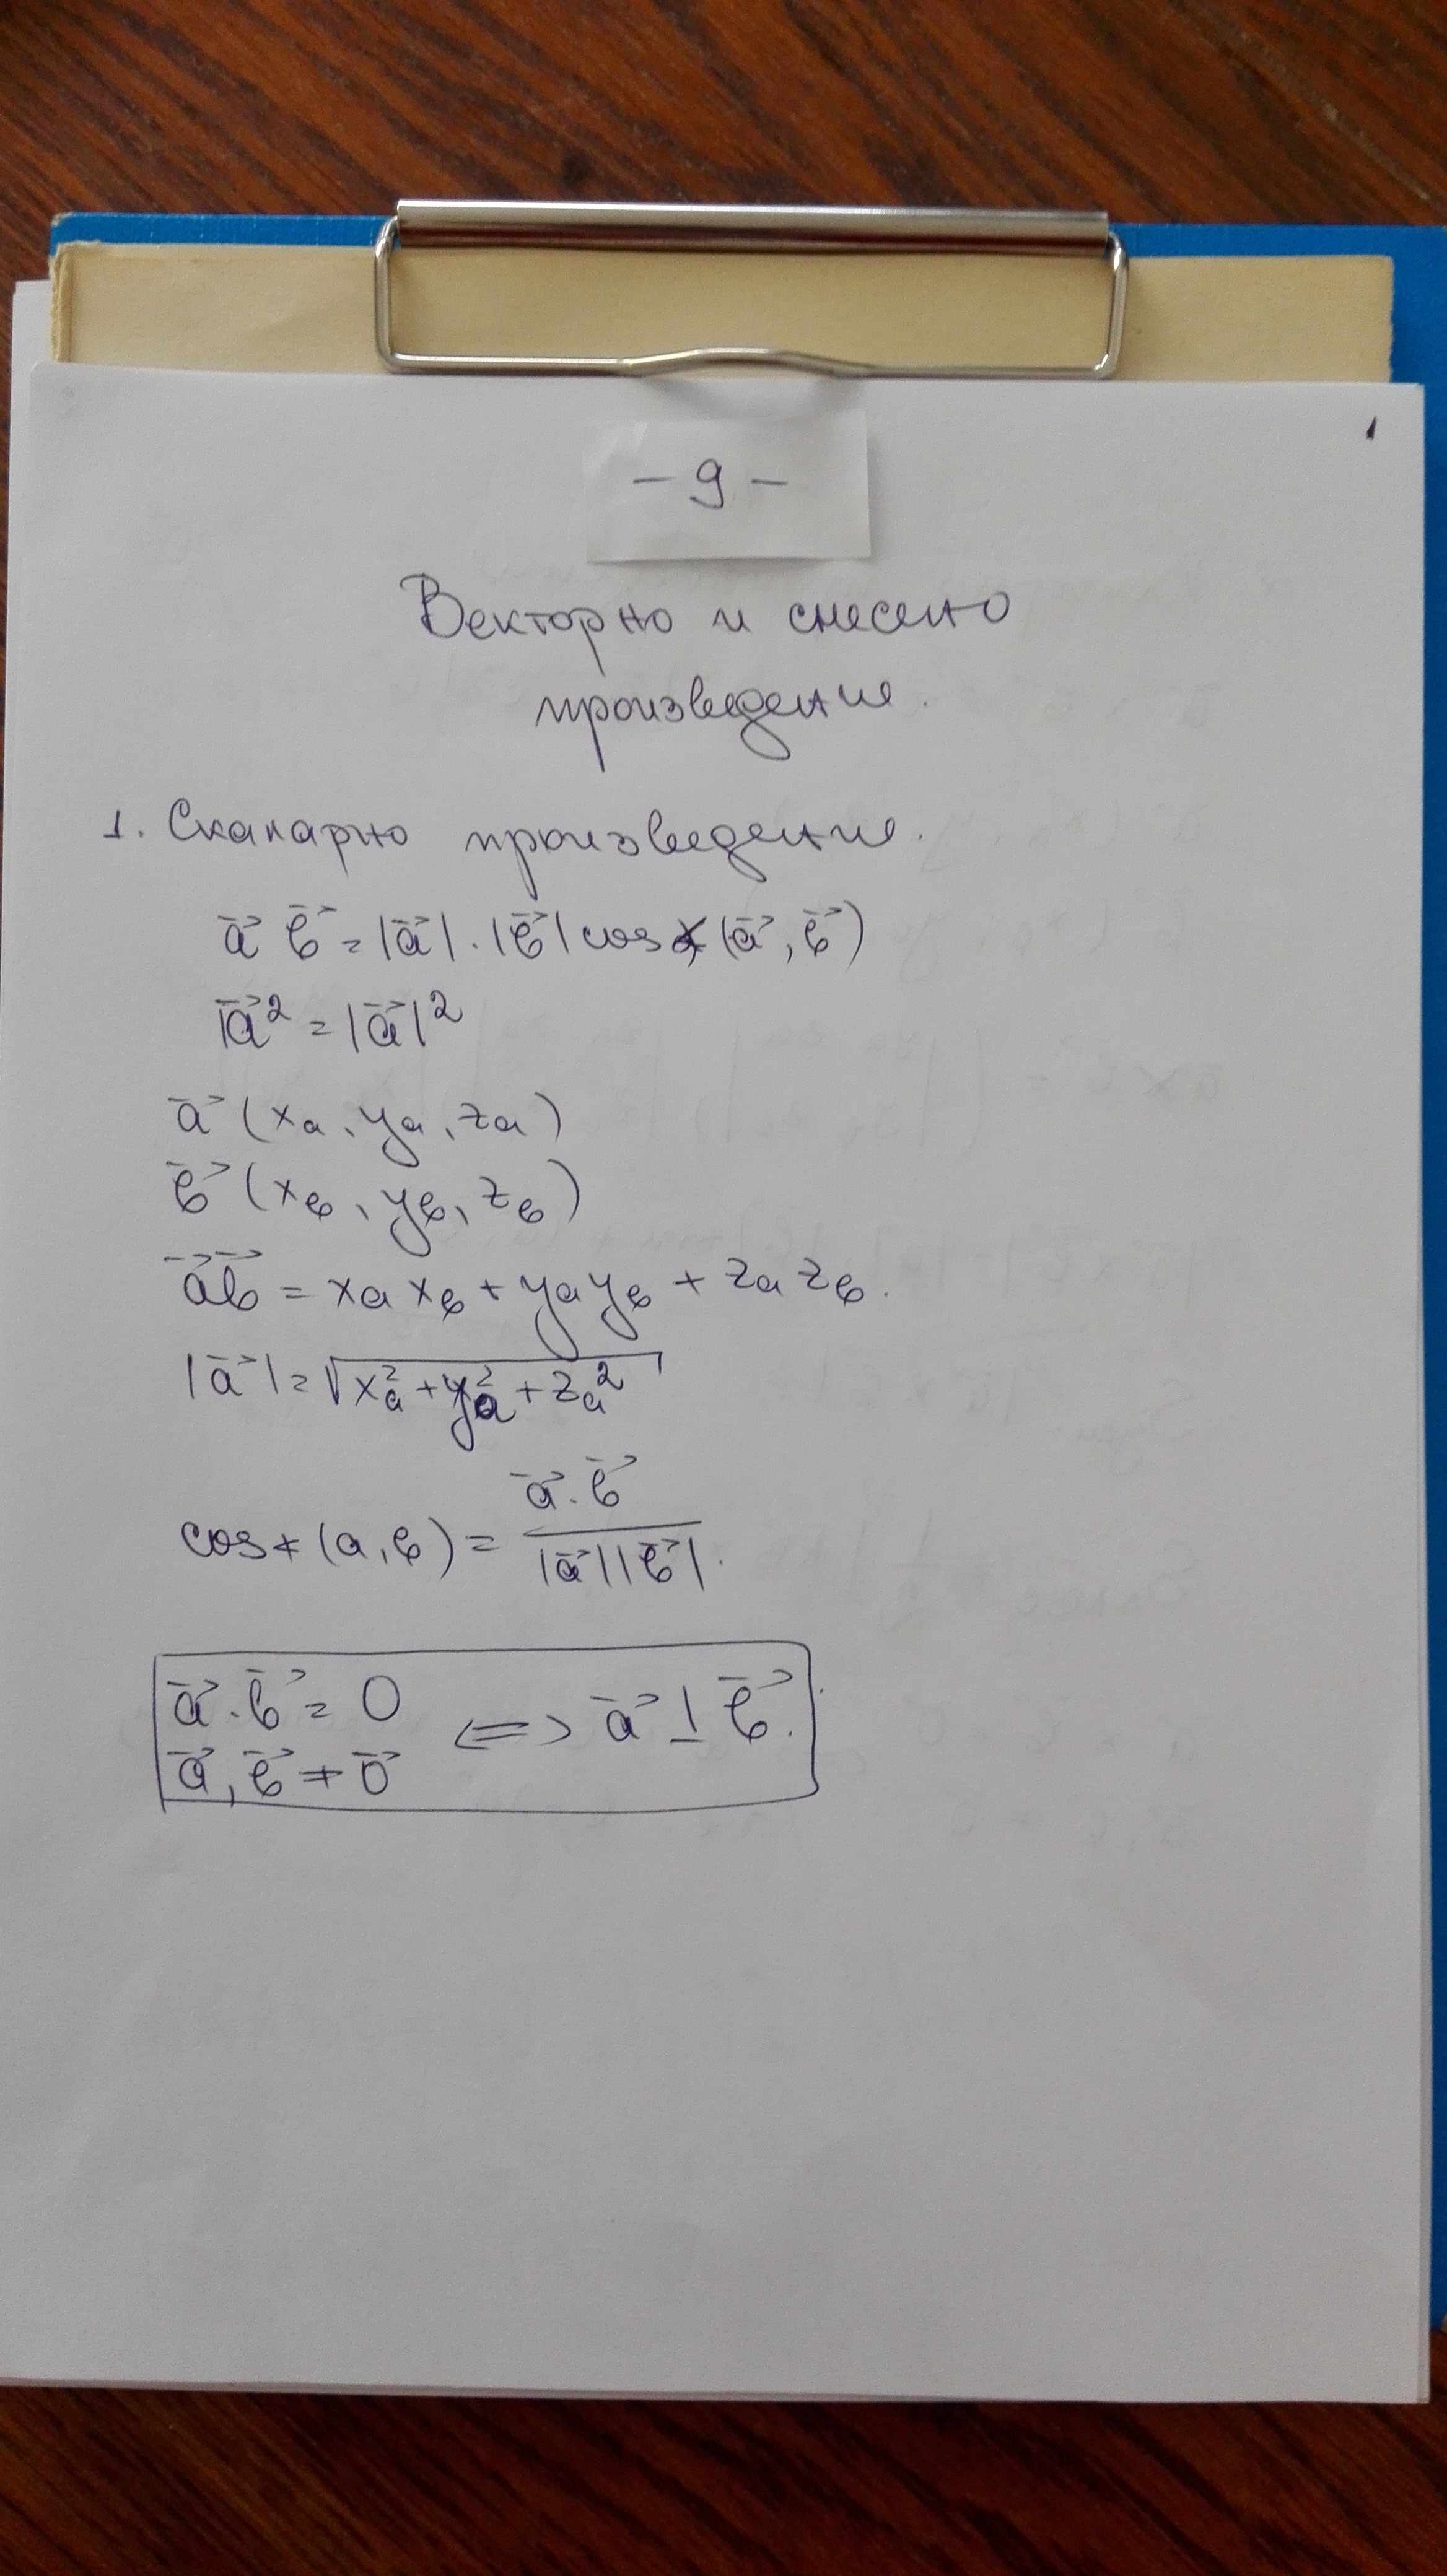 - 9 -
1
Векторно и смесено
произведение.
1. Скаларно произведение.
a⃗ b⃗ = |a⃗|.|b⃗| cos∢(a⃗, b⃗)
a⃗² = |a⃗|²
a⃗ (xa, ya, za)
b⃗ (xb, yb, zb)
a⃗b⃗ = xa xb + ya yb + za zb.
|a⃗| = √(xa² + ya² + za²)
cos∢(a, b) = a⃗.b⃗ / |a⃗||b⃗|.
a⃗.b⃗ = 0 ⟺ a⃗ ⊥ b⃗.
a⃗, b⃗ ≠ 0⃗